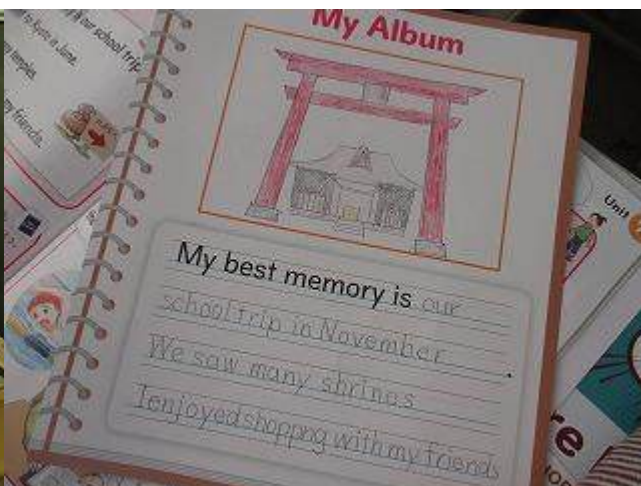 My Album
My best memory is our
school trip in November
.
We saw many shrinas
Ienjoyed shoppng with my friends
our school trip
to Kyoto in June.
temples.
my friends.
Unit
re